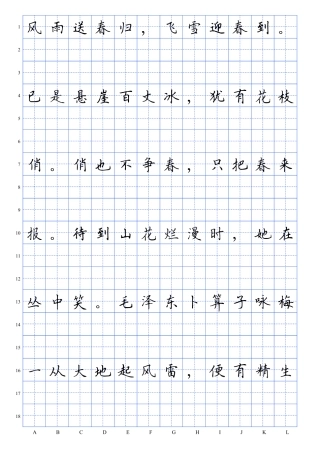 风雨送春归，飞雪迎春到。
已是悬崖百丈冰，犹有花枝
俏。俏也不争春，只把春来
报。待到山花烂漫时，她在
丛中笑。毛泽东卜算子咏梅
一从大地起风雷，便有精生
1
4
7
10
13
16
18
A B C D E F G H I J K L